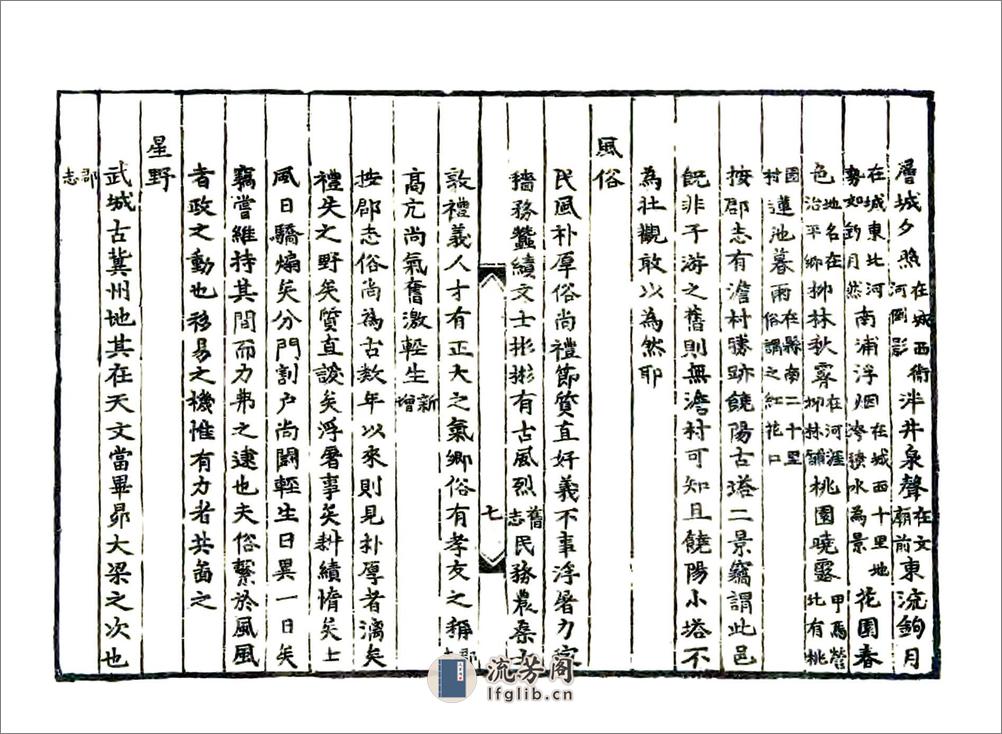 層城夕照在城西衛河倒影泮井泉聲在文廟前東流鉤月
在城東北河勢如鈎月然南浦浮烟在城西十里地積水為景花園春
色地名在治平鄉柳林秋霽在河涯柳林鋪桃園曉靄甲馬營北有桃
園村蓮池暮雨在縣南二十里俗謂之紅花口
按郡志有澹村勝跡饒陽古塔二景竊謂此邑
旣非子游之舊則無澹村可知且饒陽小塔不
為社觀敢以為然耶
風俗
民風朴厚俗尚禮節質直好義不事浮屠力家
穡務蠶績文士彬彬有古風烈舊志民務農桑士
七
敦禮義人才有正大之氣鄉俗有孝友之稱郡
高亢尚氣奮激輕生新增
按郡志俗尚為古数年以來則見朴厚者漓矣
禮失之野矣質直諼矣浮屠事矣耕績惰矣士
風日驕煽矣分門割户尚鬪輕生日異一日矣
竊嘗維持其間而力弗之逮也夫俗繫於風風
者政之動也移易之機惟有力者共啚之
星野
武城古冀州地其在天文當畢昴大梁之次也
郡志
流芳阁
lfglib.cn